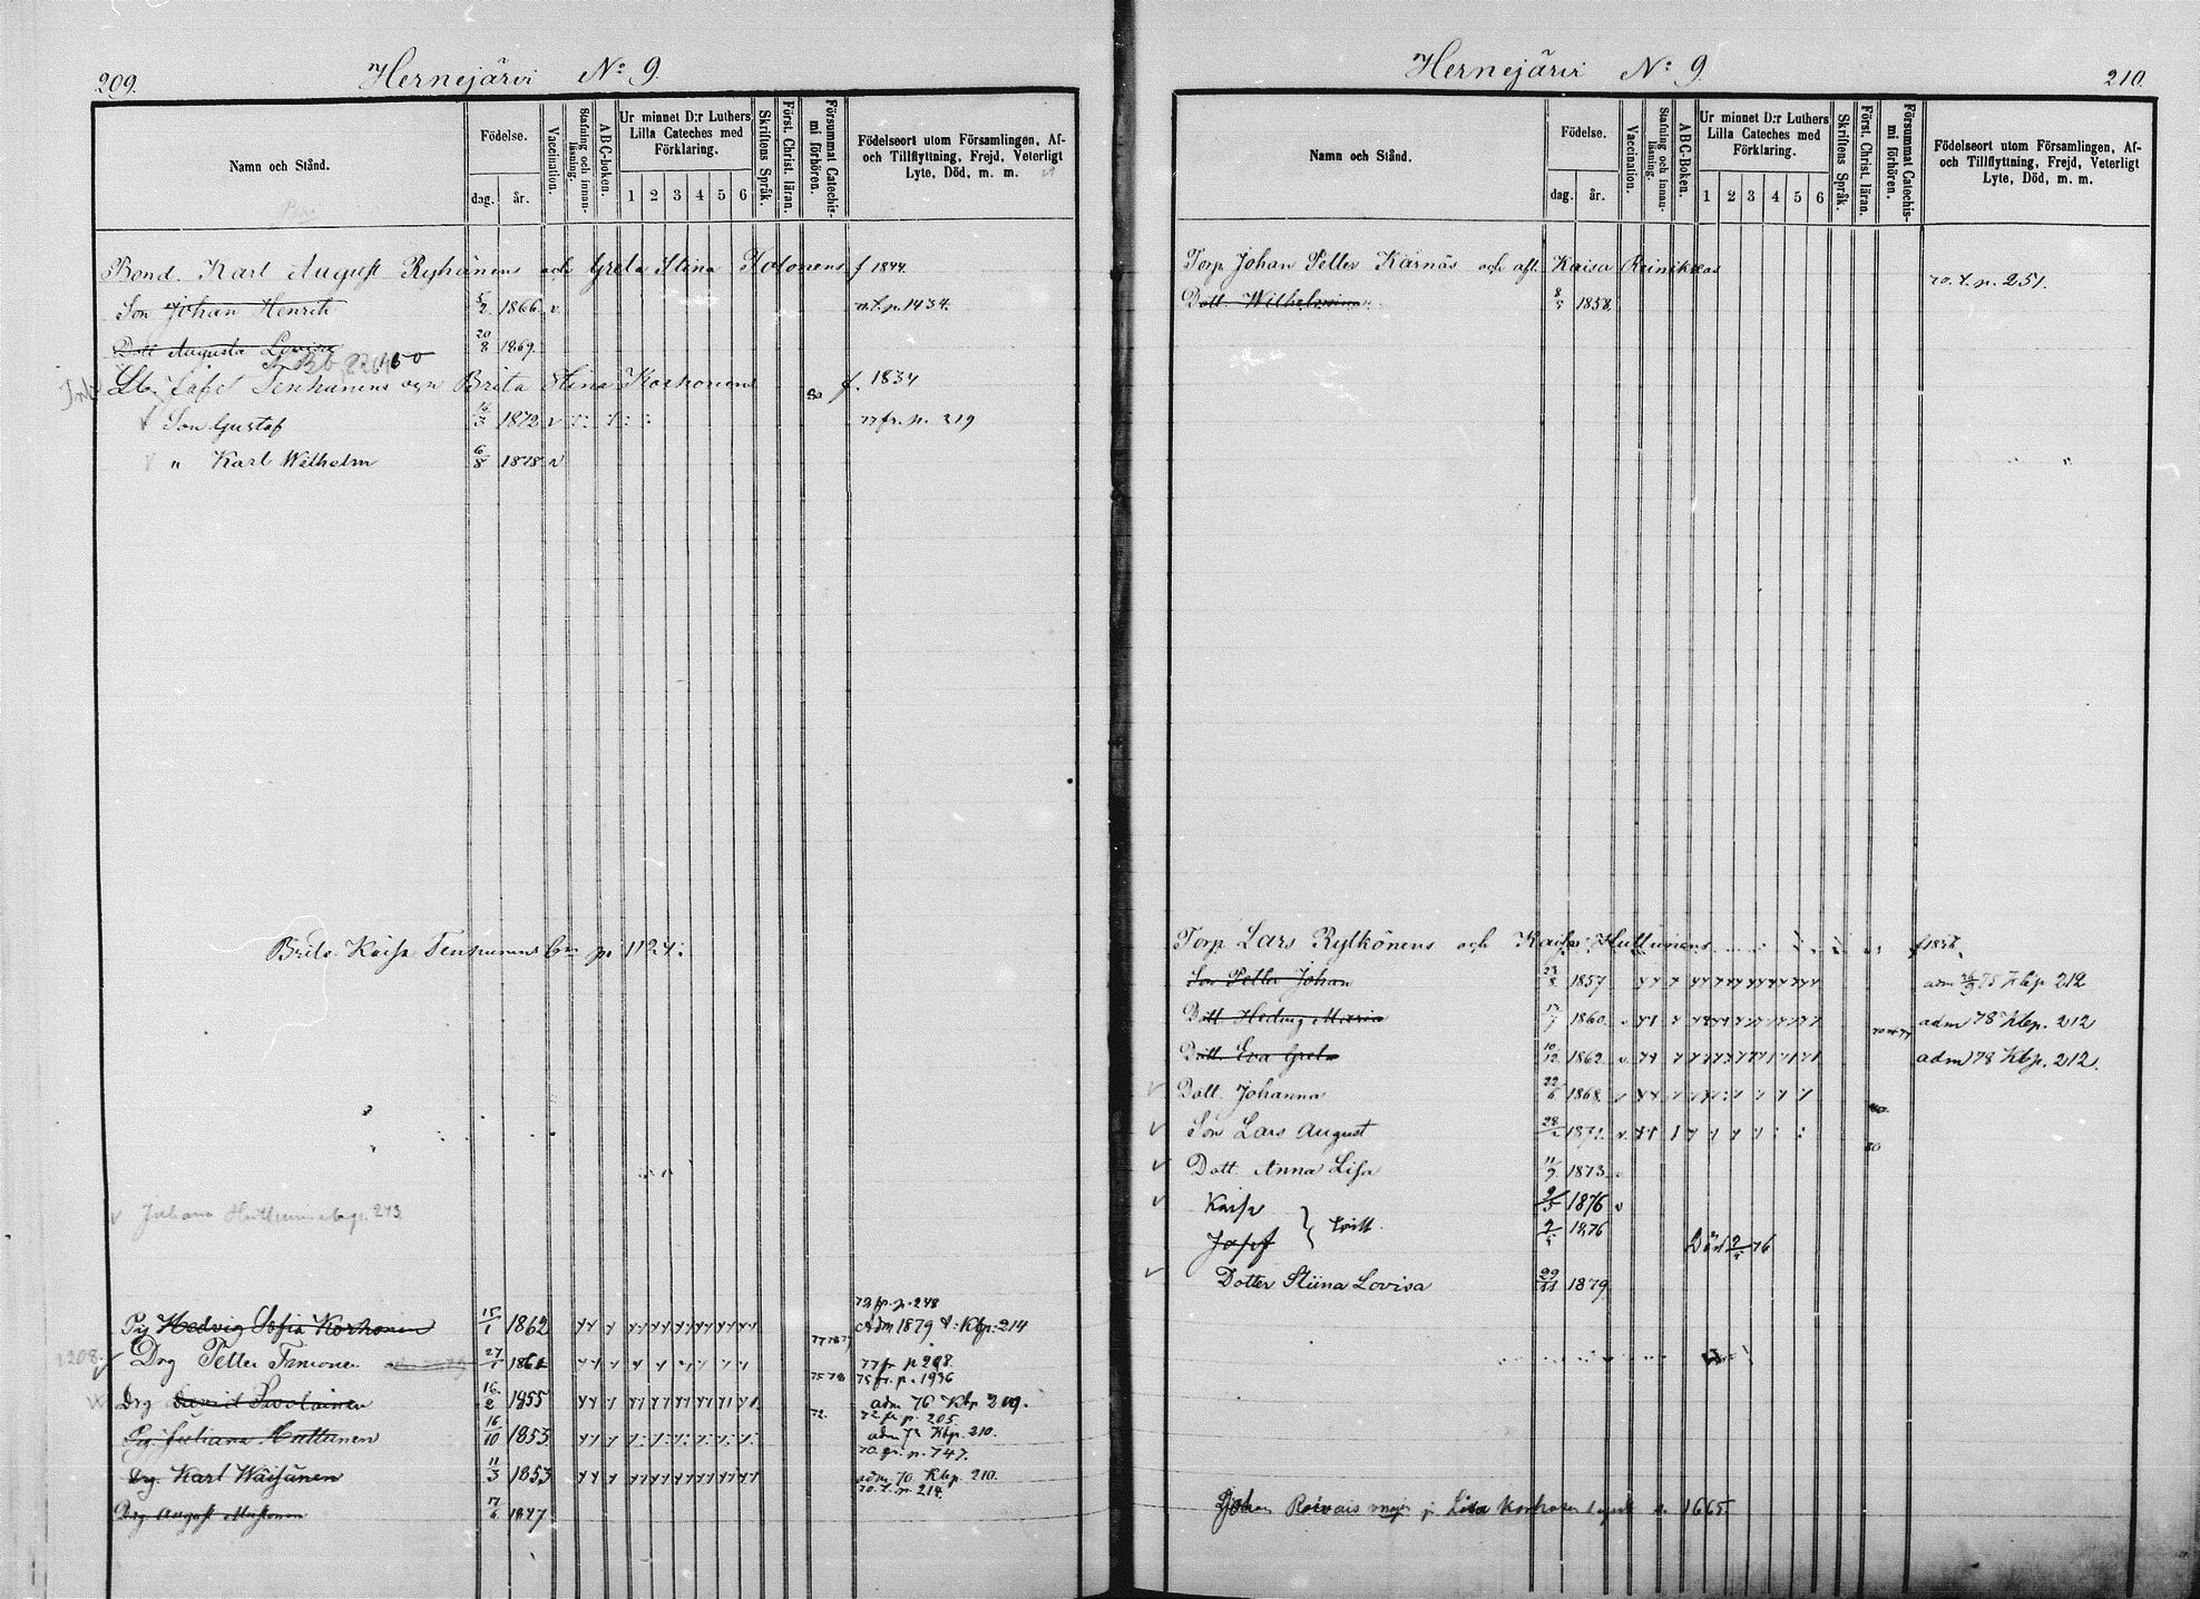 209. Hernejärvi No: 9.
Namn och Stånd.
Födelse.
dag. år.
Vaccination.
Stafning och innan-läsning.
ABC-boken.
Ur minnet D:r Luthers Lilla Cateches med Förklaring.
1 2 3 4 5 6
Skriftens Språk.
Först. Christ. läran.
Försummat Catechis-mi förhören.
Födelseort utom Församlingen, Af- och Tillflyttning, Frejd, Veterligt Lyte, Död, m. m.
Bond. Karl August Ryhänens och Greta Stina Tolonens f 1844.
Son Johan Henrik 5/2 1866 v. t. p. 1434.
Dott Augusta Lovisa 20/8 1869.
Tenhunens Brita Stina Korhonens 80 f. 1834
Son Gustaf 1872 v 77 fr. p. 219
" Karl Wilhelm 6/8 1878 v
Brita Kaisa Tenhunens p. 1124.
Juliana 213
72 fr. p. 248
Pig Hedvig Sofia Korhonen 15/1 1862 Adm 1879 t: Kbp: 214
1208. Drg Petter Timonen 27/1 1861 77 fr p 208.
75 78 75 fr. p. 1936
Drg David Savolainen 16/2 1855 adm 76 Kbp 209.
72. 72 fr p. 205.
Pig. Juliana Huttunen 16/10 1853 adm 72 Kbp. 210.
70. fr. p. 747.
Drg. Karl Wäisänen 11/3 1853 adm. 70 Kbp. 210.
70. t. p. 214.
Drg. August Mustonen 17/6 1847
Hernejärvi No: 9 210.
Namn och Stånd.
Födelse.
dag. år.
Vaccination.
Stafning och innan-läsning.
ABC-Boken.
Ur minnet D:r Luthers Lilla Cateches med Förklaring.
1 2 3 4 5 6
Skriftens Språk.
Först. Christ. läran.
Försummat Catechis-mi förhören.
Födelseort utom Församlingen, Af- och Tillflyttning, Frejd, Veterligt Lyte, Död, m. m.
Torp Johan Petter Kärnäs och afl. Kaisa Reinikkas
70. t. p. 251.
Dott. Wilhelmina 1858.
Torp. Lars Rytkönens och Kaisa Huttunens
Son Petter Johan 23/8 1857 adm 75 Kbp 212
Dott Hedvig Maria 17/7 1860. adm 78 Kbp. 212
Dott. Eva Greta 10/12 1862. v. adm 78 Kbp. 212.
Dott. Johanna 22/6 1868.
Son Lars August 28/2 1871. v. 80
Dott. Anna Lisa 1873.
Kaisa 1876 v
Josef } tvill. 1876 Död 76
Dotter Stiina Lovisa 29/11 1879
Johan Lisa Korhonen 1665